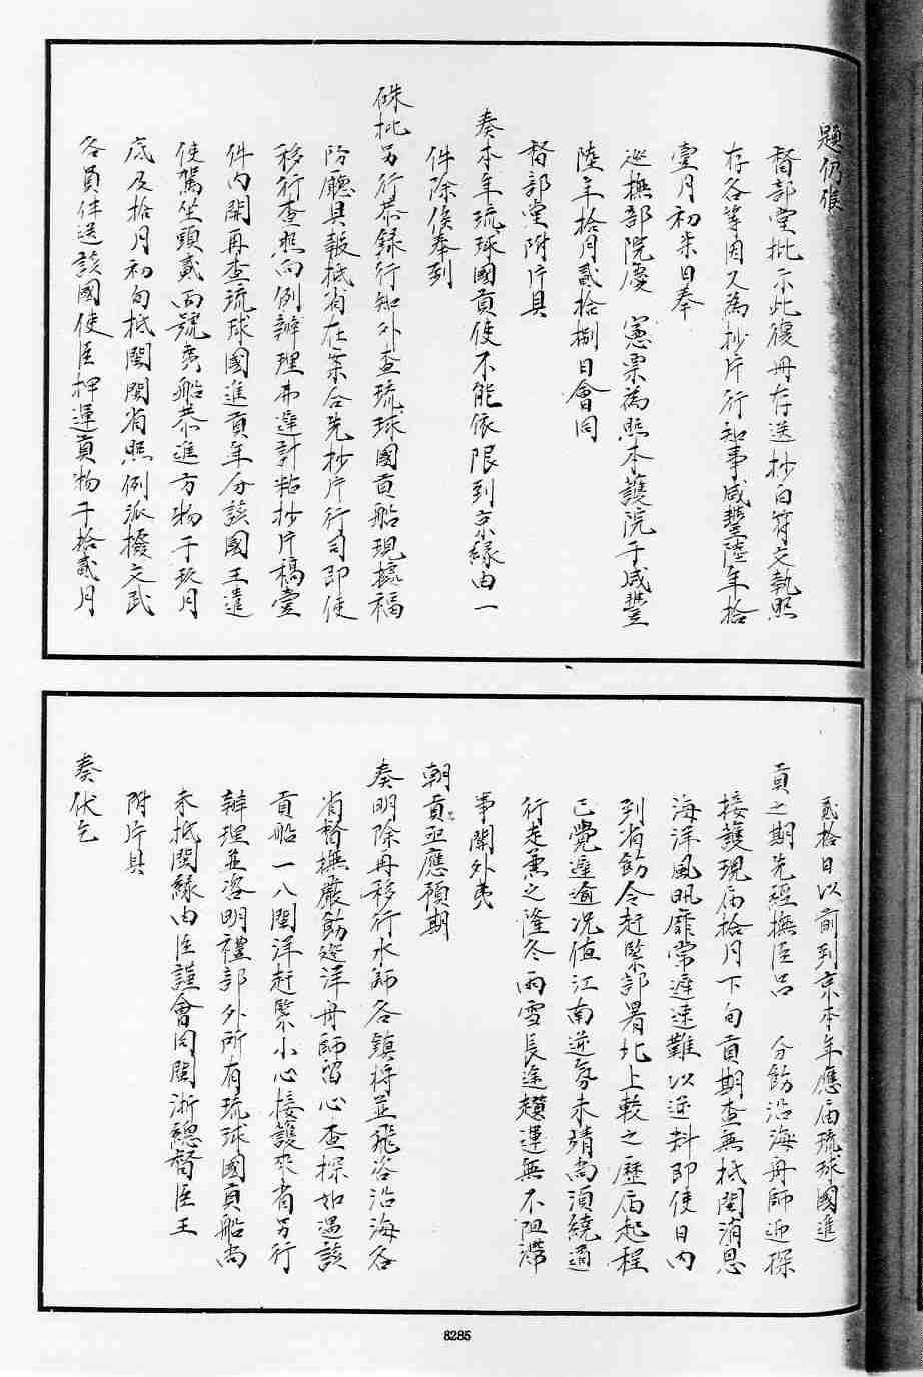 題仍候
督部堂批示此復冊存送抄白符文執照
存各等因又為抄片行知事咸豐陸年拾
壹月初柒日奉
巡撫部院慶　憲票為照本護院于咸豐
陸年拾月貳拾捌日會同
督部堂附片具
奏本年琉球國貢使不能依限到京緣由一
件除俟奉到
硃批另行恭錄行知外查琉球國貢船現據福
防廳具報抵省在案合先抄片行司即使
移行查照向例辦理弗違計粘抄片稿壹
件內開再查琉球國進貢年分該國王遣
使駕坐頭貳兩號夷船恭進方物于玖月
底及拾月初旬抵閩閩省照例派撥文武
各員伴送該國使臣押運貢物于拾貳月
貳拾日以前到京本年應屆琉球國進
貢之期先經撫臣呂　分飭沿海舟師迎探
接護現屆拾月下旬貢期查無抵閩消息
海洋風帆靡常遲速難以逆料即使日內
到省飭令赶緊部署北上較之歷屆起程
已覺遲逾况值江南逆氛未靖尚須繞道
行走兼之隆冬雨雪長途趲運無不阻滯
事關外夷
朝貢亟應預期
奏明除再移行水師各鎮將並飛咨沿海各
省督撫嚴飭巡洋舟師留心查探如遇該
貢船一入閩洋赶緊小心接護來省另行
辦理並咨明禮部外所有琉球國貢船尚
未抵閩緣由臣謹會同閩浙總督臣王
附片具
奏伏乞
8285